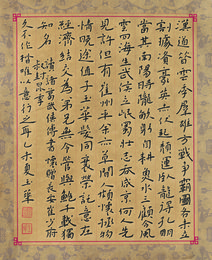 漢道昔雲季群雄方戰爭霸圖各未立
割據資豪英赤伏起頹運臥龍得孔明
當其南陽時隴畝躬自耕魚水三顧合風
雲四海生武侯立岷蜀壯志吞咸京何人先
見許但有崔州平余亦草間人頗懷拯物
情晚途值子玉華髮同衰榮託意在
經濟結交為弟兄無令管與鮑千載獨
知名
讀諸葛武侯傳書懷贈長安崔少府
叔封昆季
久不作楷唯以意行之耳乙未夏玉華